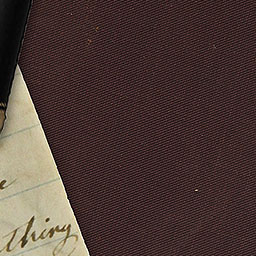 e
thing